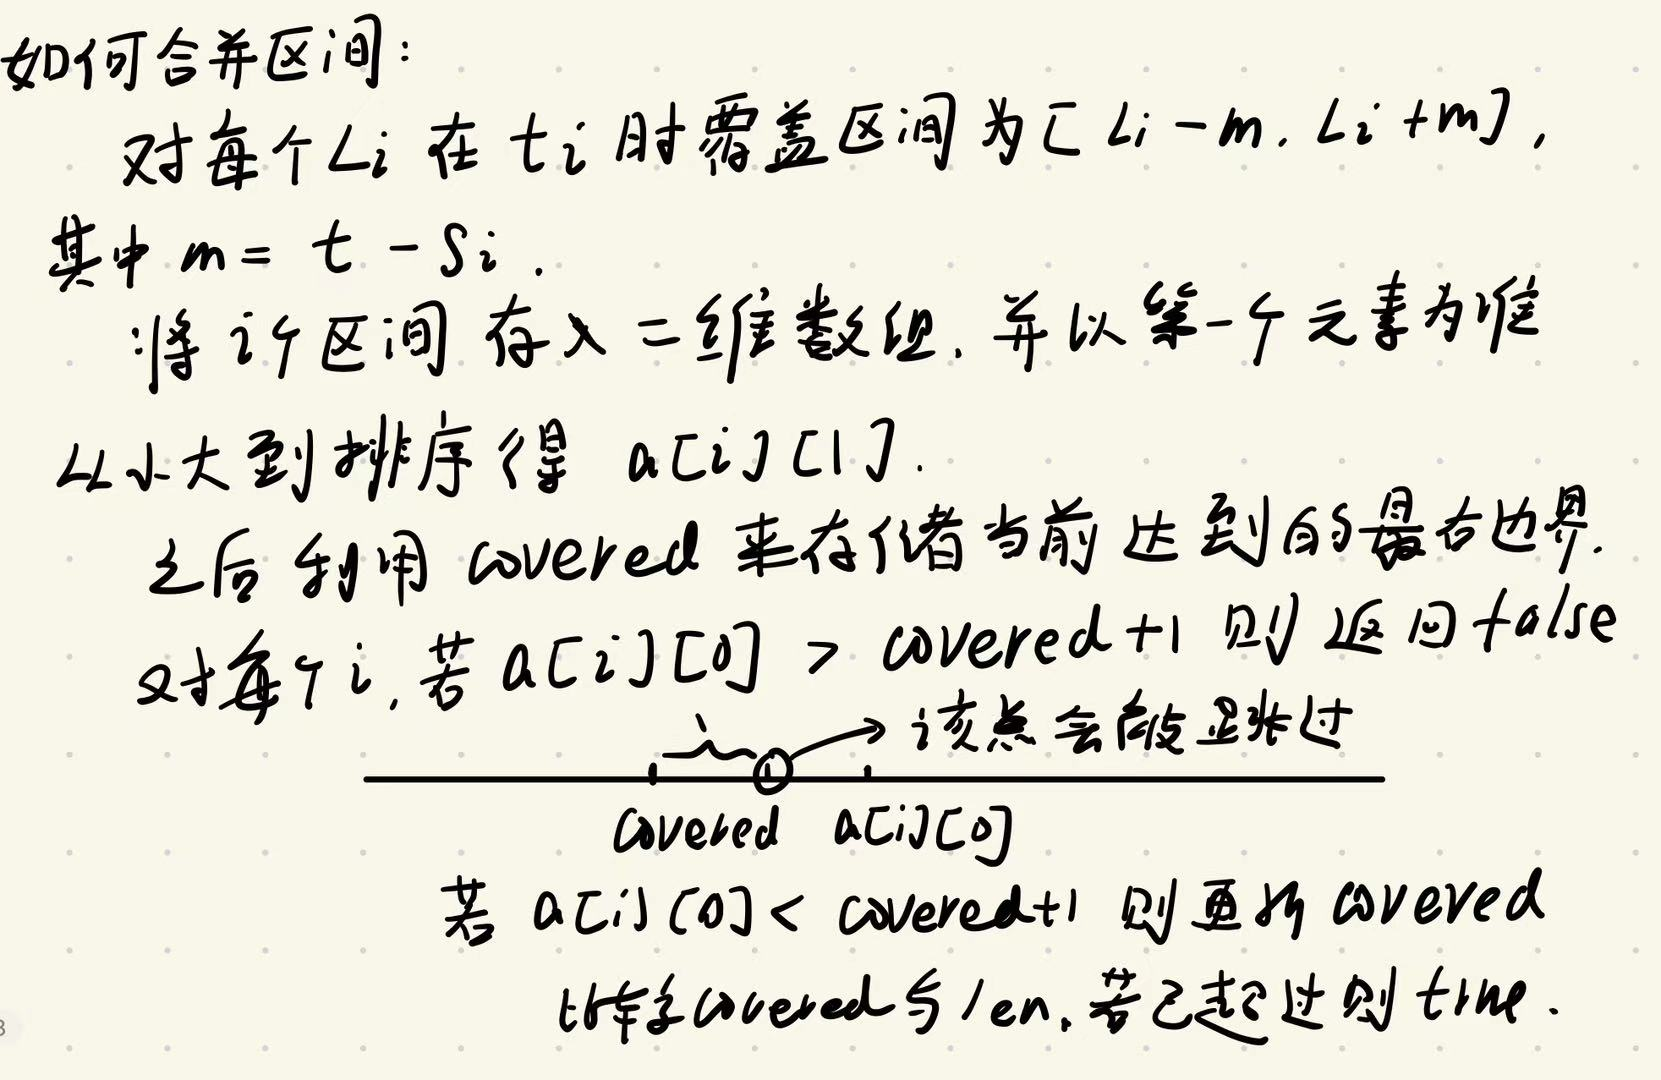 如何合并区间：
对每个Li 在 ti 时覆盖区间为[Li-m, Li+m],
其中 m= t-Si.
将i个区间存入二维数组,并以第一个元素为准
从小大到排序得 a[i][1].
之后利用covered来存储当前达到的最右边界.
对每个i,若a[i][0] > covered+1 则返回false
该点会被跳过
covered a[i][0]
若 a[i][0]< covered+1 则更新covered
比较covered与len,若已超过则true.